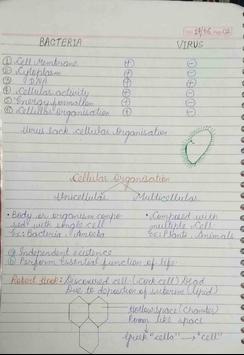 BACTERIA VIRUS
① Cell Membrane + -
② Cytoplasm + -
③ DNA + +
④ Cellular activity + -
⑤ Energy formation + -
⑥ Cellular Organisation + -
Virus lack cellular Organisation
Cellular Organisation
Unicellular Multicellular
• Body or organism compo- • Composed with
sed with single cell multiple Cell
Ex: Bacteria, Amoeba Ex: Plants, Animals
① Independent existence
② Perform Essential function of life
Robert Hook: Discovered cell (cork cell) Dead
Due to deposition of suberine (lipid)
Hollow space (Chamber)
Room like space
Greek "cella" → "cell"